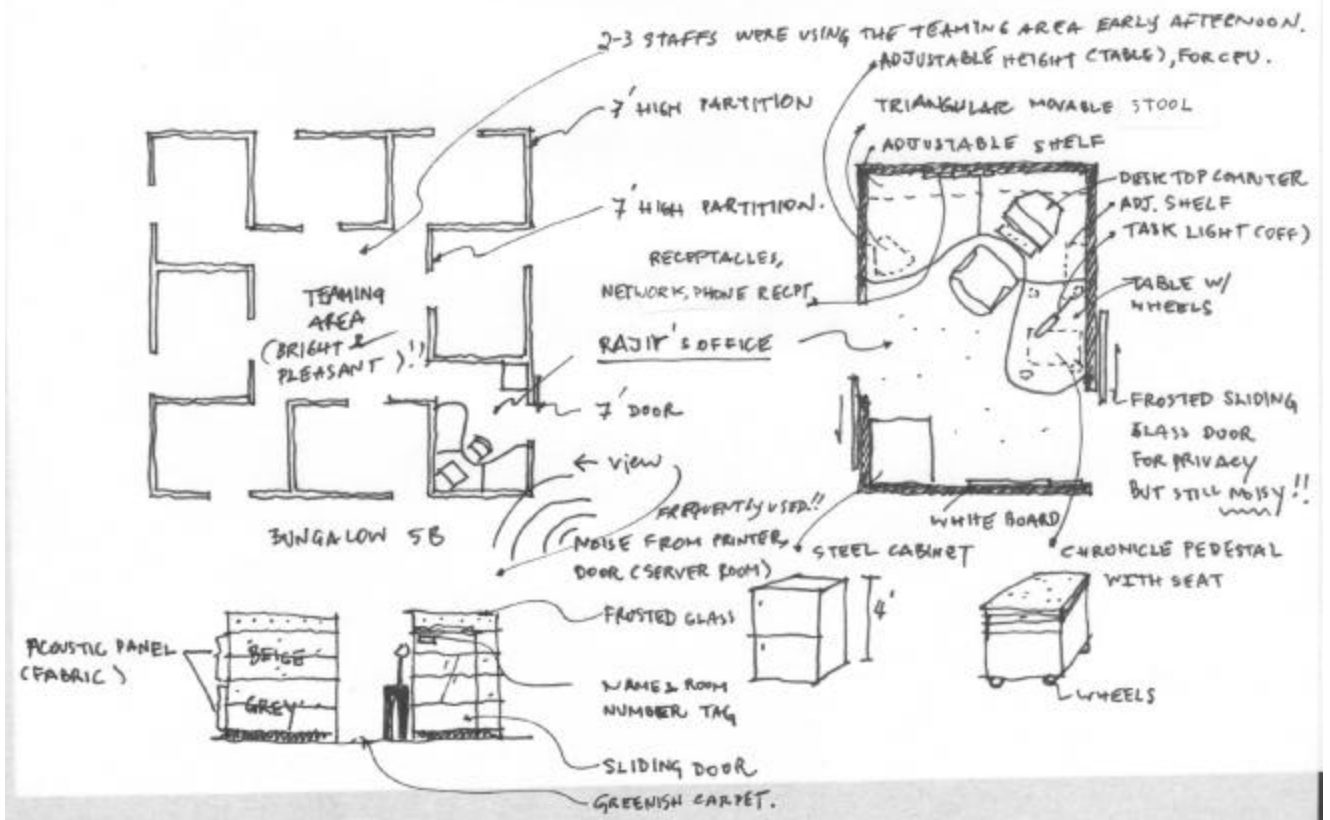 2-3 STAFFS WERE USING THE TEAMING AREA EARLY AFTERNOON.
ADJUSTABLE HEIGHT (TABLE), FOR CPU.
7' HIGH PARTITION
TRIANGULAR MOVABLE STOOL
ADJUSTABLE SHELF
DESKTOP COMPUTER
ADJ. SHELF
TASK LIGHT (OFF)
7' HIGH PARTITIION.
RECEPTACLES,
NETWORK, PHONE RECPT.
TABLE W/
WHEELS
TEAMING
AREA
(BRIGHT &
PLEASANT)!!
RAJIV'S OFFICE
7' DOOR
FROSTED SLIDING
GLASS DOOR
FOR PRIVACY
BUT STILL NOISY!!
← VIEW
FREQUENTLY USED!!
NOISE FROM PRINTER,
DOOR (SERVER ROOM)
BUNGALOW 5B
WHITE BOARD
STEEL CABINET
CHRONICLE PEDESTAL
WITH SEAT
4'
WHEELS
FROSTED GLASS
ACOUSTIC PANEL
(FABRIC)
BEIGE
GREY
NAME & ROOM
NUMBER TAG
SLIDING DOOR
GREENISH CARPET.